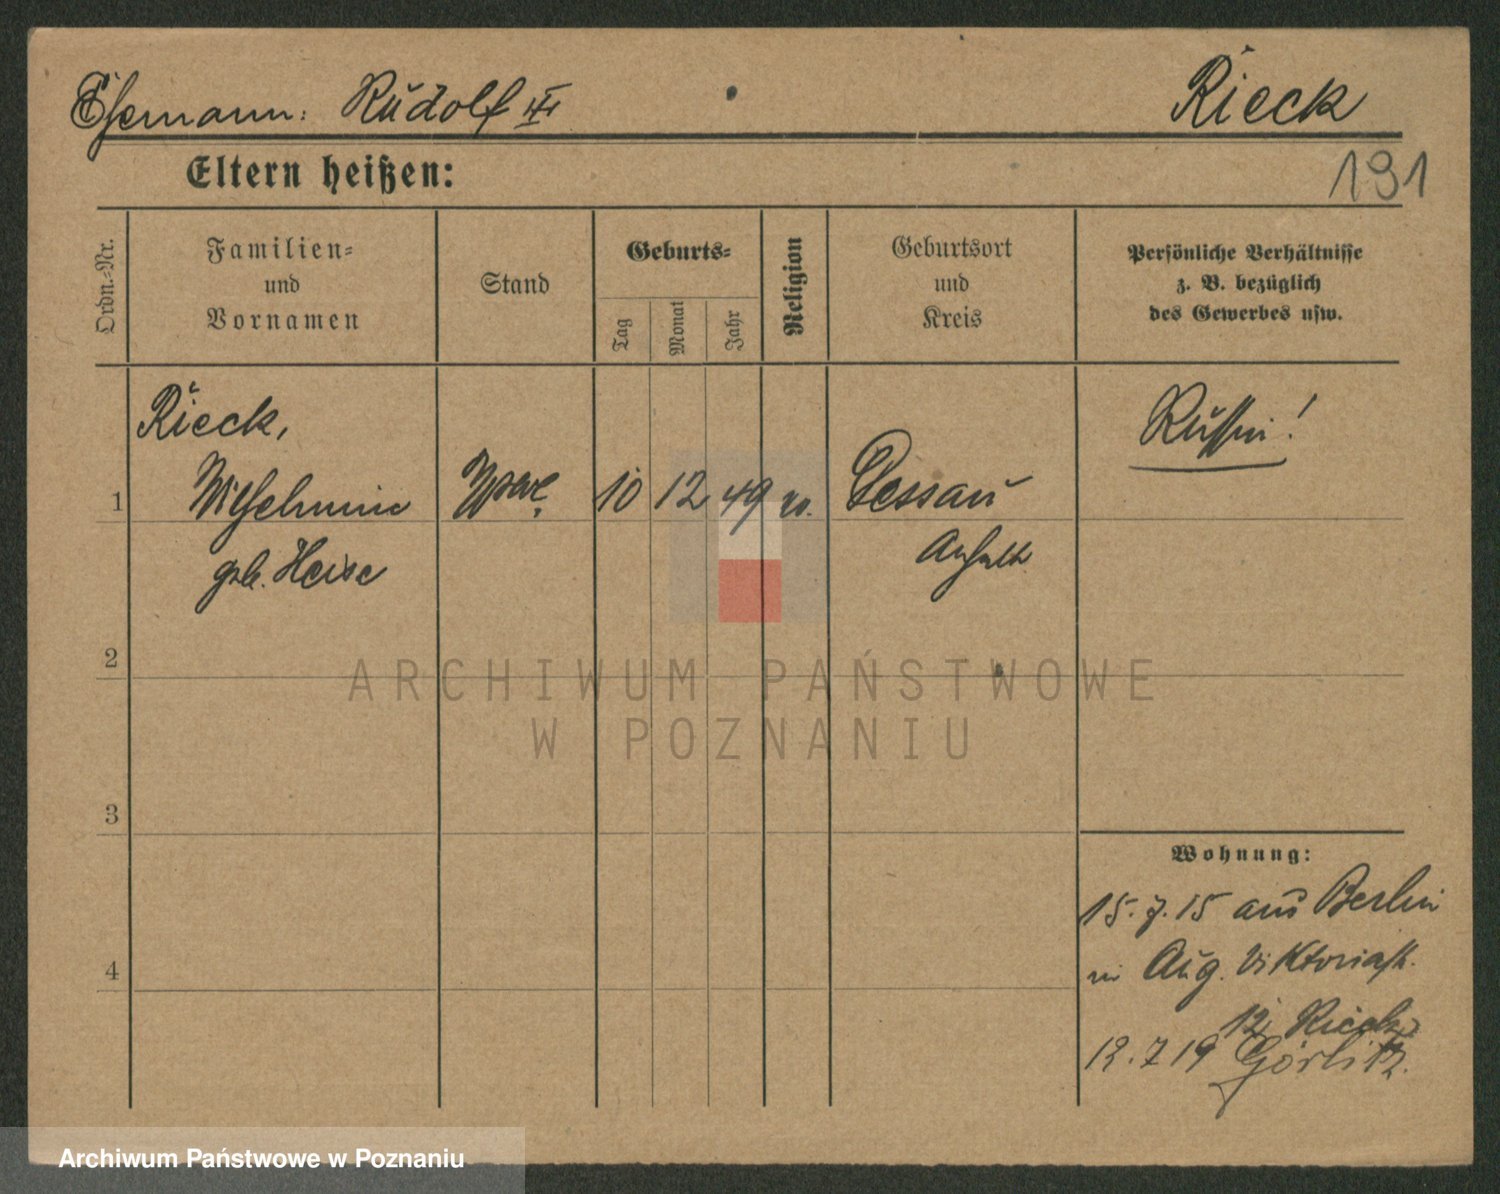 Ehemann: Rudolf III Rieck
191
Eltern heißen:
Ordn.-Nr.
Familien-
und
Vornamen
Stand
Geburts-
Tag
Monat
Jahr
Religion
Geburtsort
und
Kreis
Persönliche Verhältnisse
z. B. bezüglich
des Gewerbes usw.
Rieck,
Russin!
1 Wilhelmine Wwe. 10 12 49 Dessau
geb. Heise Anhalt
2
ARCHIWUM PAŃSTWOWE
W POZNANIU
3
Wohnung:
15.7.15 aus Berlin
in Aug. Viktoriastr.
12 Rieck
12.7 19 Görlitz.
4
Archiwum Państwowe w Poznaniu